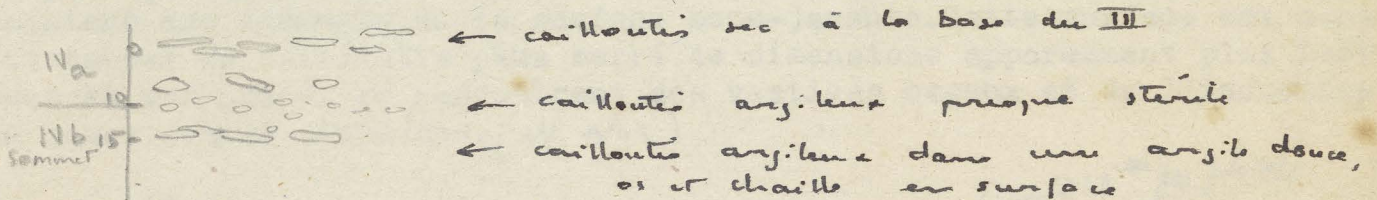 0 ← cailloutis sec à la base du III
IVa
10 ← cailloutis argileux presque stérile
IVb 15
sommet
← cailloutis argileux dans une argile douce,
os et chaille en surface